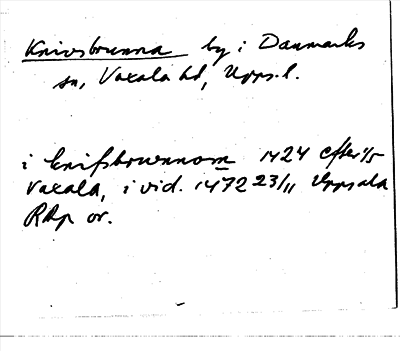 Knivsbrunna by i Danmarks
sn, Vaxala hd, Upps.l.
i knifsbrwnnom 1424 efter 1/5
Vaxala, i vid. 1472 23/11 Uppsala
RAp or.